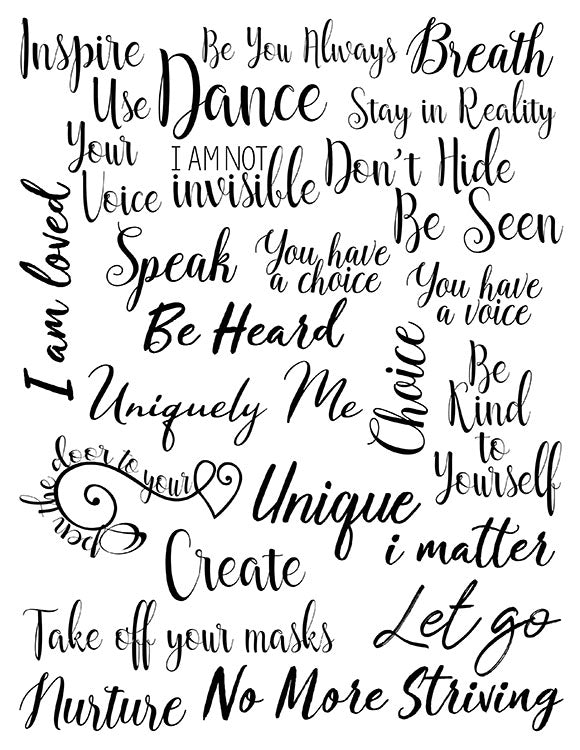 Inspire
Be You Always
Breath
Use
Your
Voice
Dance
Stay in Reality
I AM NOT
invisible
Don't Hide
Be Seen
I am loved
Speak
You have
a choice
You have
a voice
Be Heard
Choice
Be
Kind
to
Yourself
Uniquely Me
Open the door to your
Unique
i matter
Create
Let go
Take off your masks
Nurture
No More Striving